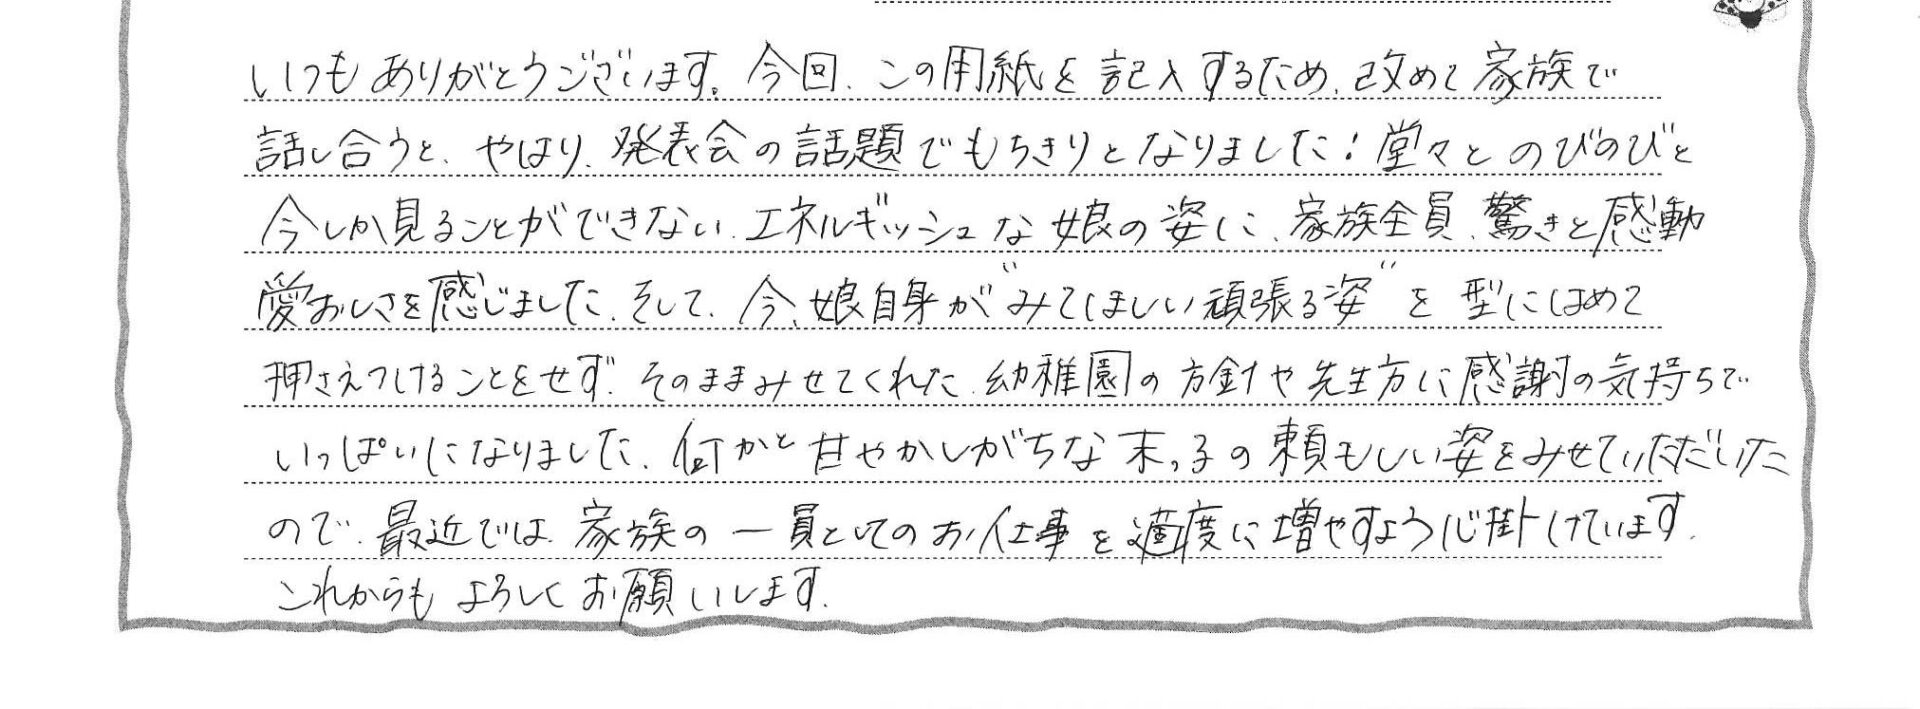 いつもありがとうございます。今回、この用紙を記入するため、改めて家族で
話し合うと、やはり、発表会の話題でもちきりとなりました!堂々とのびのびと
今しか見ることができない、エネルギッシュな娘の姿に、家族全員、驚きと感動
愛おしさを感じました。そして、今、娘自身が“みてほしい頑張る姿”を型にはめて
押さえつけることをせず、そのままみせてくれた、幼稚園の方針や先生方に感謝の気持ちで
いっぱいになりました。何かと甘やかしがちな末っ子の頼もしい姿をみせていただいた
ので、最近では、家族の一員としてのお仕事を適度に増やすよう心掛けています。
これからもよろしくお願いします。